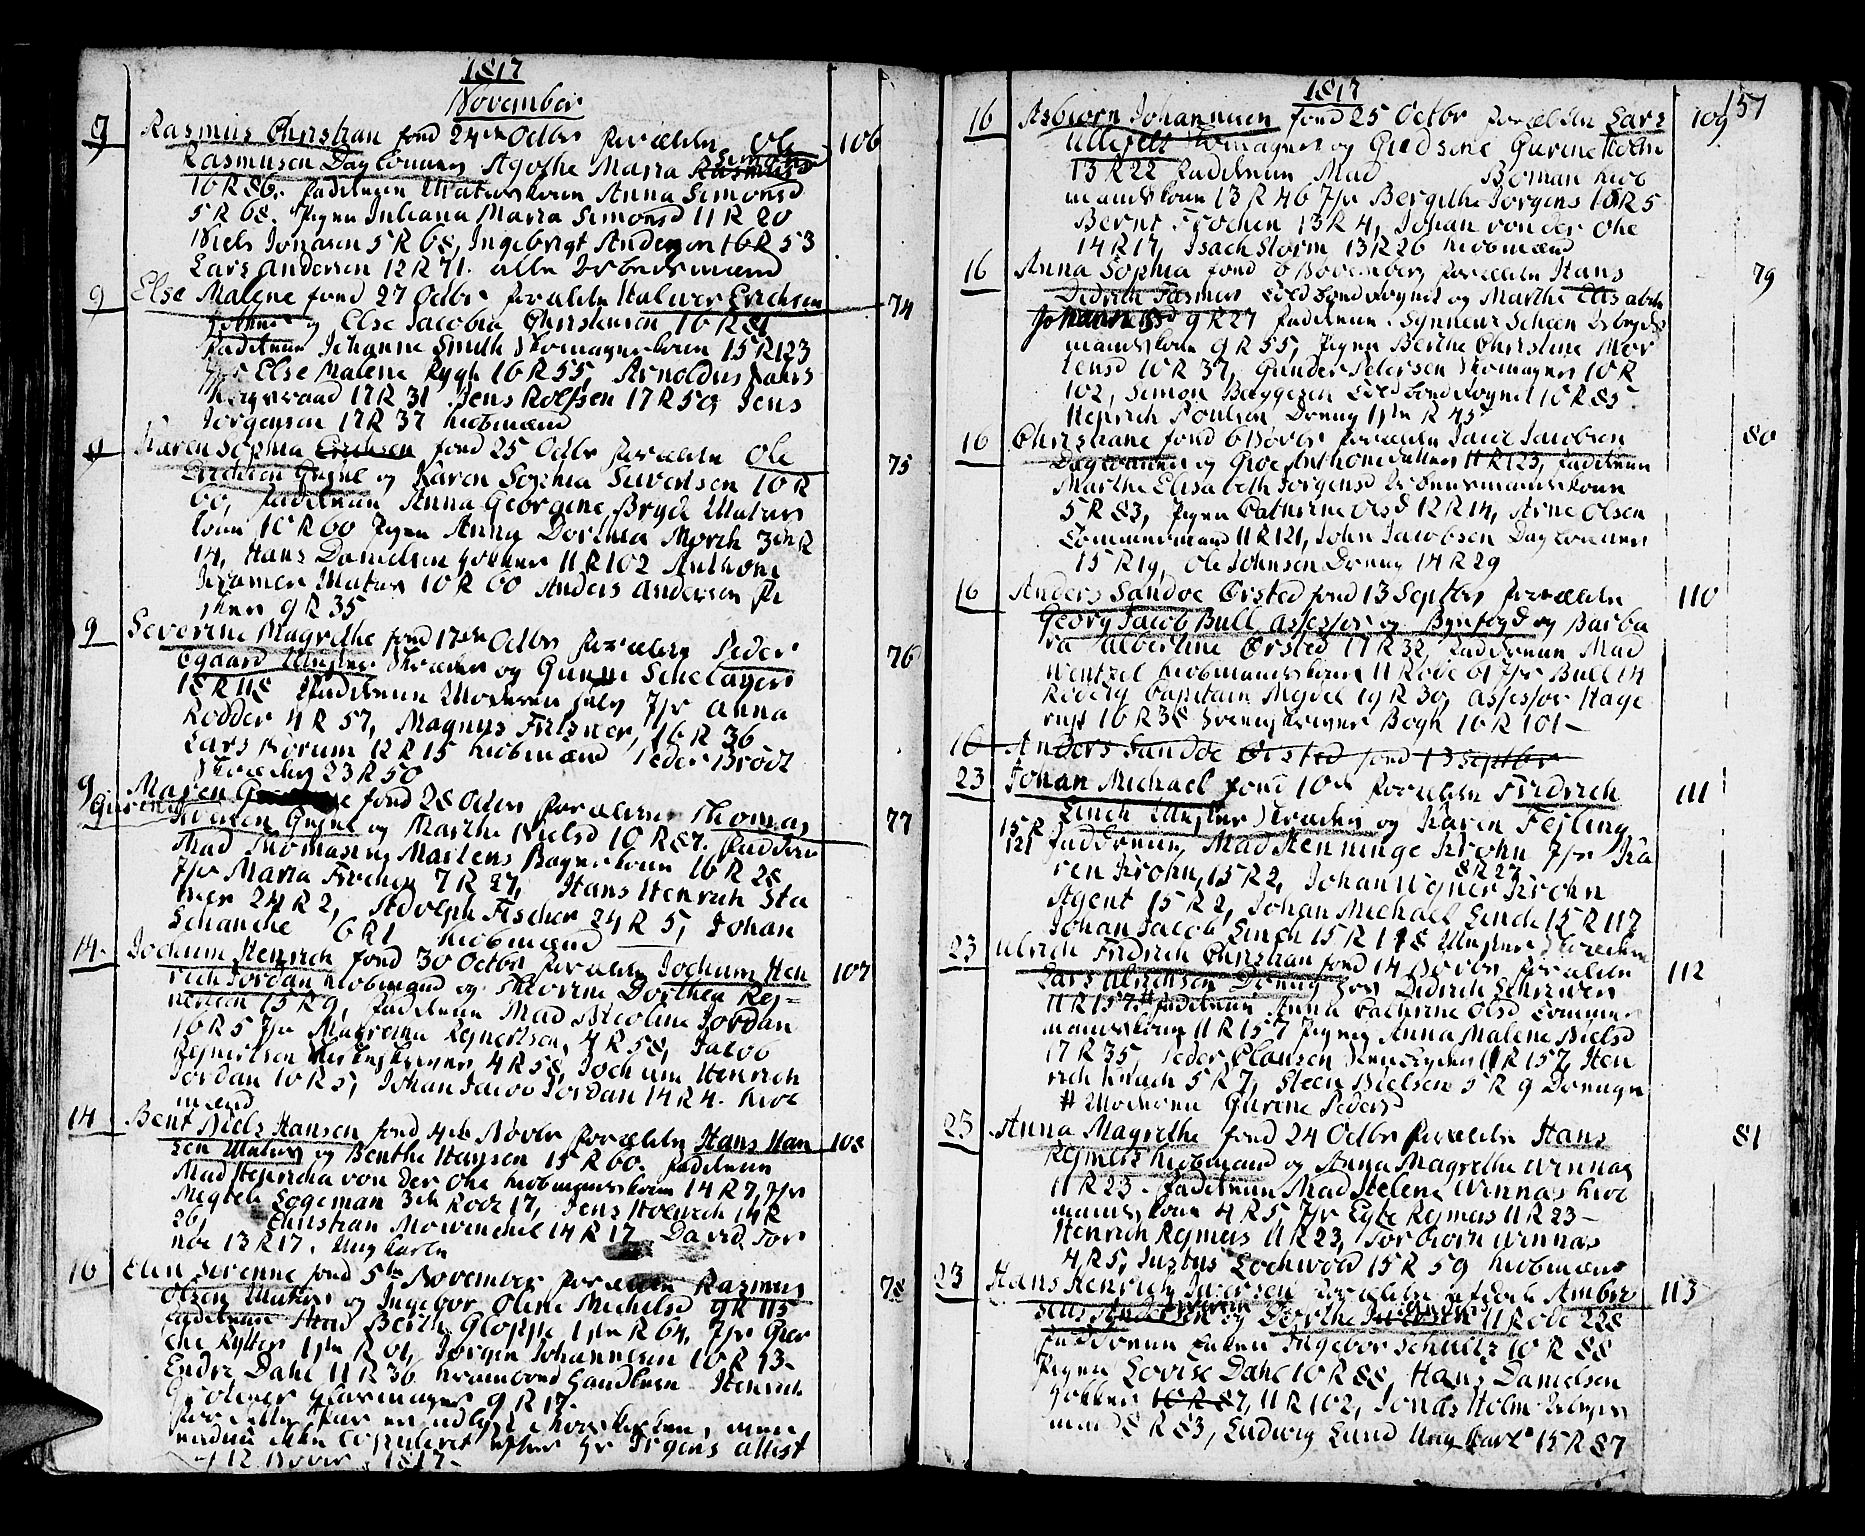 1817
November
9 Rasmus Christian fød 24de Octbr forældre Ole 106
Rasmusen Daglønner Agothe Maria Simonsd
16 R 86. fadderne Matroskone Anna Simonsd
5 R 68. Pigen Juliana Maria Simonsd 11 R 20
Niels Jonasen 5 R 68, Ingebrigt Andersen 16 R 53
Lars Andersen 12 R 71. alle Arbeidsmænd
9 Else Malene fød 27 Octbr forældre Halver Erichsen 74
og Else Jacobia Christensen 16 R 81
fadderne Johanne Smith Skomagerkone 15 R 123
Jfr Else Malene Rygh 16 R 55, Arnoldus
17 R 31 Jens Rolfsen 17 R 59 Jens
Jørgensen 17 R 37 kiøbmænd
9 Karen Sophia fød 25 Octbr forældre Ole 75
Erichsen og Karen Sophia Sivertsen 10 R
60, fadderne Anna Georgine Bryde Matros
kone 10 R 60 Pigen Anna Dorthea Morch 3de R
14, Hans Danielsen 11 R 102 Anthoni
Kramer Matros 10 R 60 Anders Andersen Fi
sker 9 R 35
9 Severine Magrethe fød 17de Octbr forældre Peder 76
Ogaard Mester Skræder og Schelayer
18 R 118 fadderne Moderen selv Jfr Anna
Rodder 4 R 57, Magnus Fritzner, 16 R 36
Lars Korum 12 R 15 kiøbmænd Peder Brodt
Skræder 23 R 50
9 Maren Gurine fød 28 Octbr forældre Thomas 77
og Marthe Nielsd 10 R 87. fadderne
Mad Thomasine Martens Bagerkone 16 R 28
Jfr Maria Frochen 7 R 27, Hans Henrich Sta
mer 24 R 2, Adolph Fischer 24 R 5, Johan
Schanche 6 R 1 kiøbmænd
14 Jochum Henrich fød 30 Octbr forældre Jochum Hen 107
rich Jordan kiøbmand og Severine Dorthea Rej-
nertsen 15 R 9, fadderne Mad Nicoline Jordan
16 R 5 Jfr Magretha Rejnertsen, 4 R 58, Jacob
Rejnertsen 4 R 58 Jochum Henrich
Jordan 10 R 5, Johan Jacob Jordan 14 R 4. kiøb
mænd
14 Bent Niels Hansen fød 4de Novbr forældre Hans Han 108
sen Matros og Benthe Hansen 15 R 60. fadderne
Mad Henricha von der Ohe kiøbmandskone 14 R 7, Jfr
Megtele Logeman 3de Rode 17, Jens 14 R
26, Christian Mowinchel 14 R 17 David Tor
noe 13 R 17. Ung Karle
16 Elen Serenne fød 5te November forældre Rasmus 78
Olsen Matros og Ingebor Oline Michelsd 9 R 115
fadderne Mad Berthe Gloppe 1ste R 64, Jfr Grer
che Rytter 1ste R 61, Jørgen Johannesen 10 R 13-
Endre Dahl 11 R 36 Henrich
Glarmager 9 R 17.
forældre har en
endnu ikke copuleret efter Hr Irgens attest
af 12 Novbr 1817-
1817
157
16 Asbiorn Johannesen fød 25 Octbr forældre Lars 109
Ullefelt Skomager og Giedsine Gurine Holm
13 R 22 fadderne Mad Boman kiøb
mandskone 13 R 46 Jfr Bergithe Jorgens 10 R 5
Bernt Frochen 13 R 4, Johan von der Ohe
14 R 17, Isach Storm 13 R 26 kiøbmænd
16 Anna Sophia fød 6 November forældre Hans 79
Didrich Fasmer og Marthe Elisabeth
Johannesd 9 R 27 fadderne. Synneve Scheen Arbeids
mandskone 9 R 55, Pigen Berthe Christine Mor
tensd 10 R 37, Gunder Petersen Skomager 10 R
102, Simon Baggesen 10 R 85.
Henrich Poulsen Dreng 1ste R 45
16 Christiane fød 6 Novbr forældre Jacob Jacobsen 80
Daglønner og Groe Anthonedatter 11 R 123, fadderne
Marthe Elisabeth Jorgensd Arbeidsmandskone
5 R 83, Pigen Catherine Olsd 12 R 14, Arne Olsen
Tømmermand 11 R 121, John Jacobsen Dagløner
15 R 19, Ole Johnsen Dreng 14 R 29
16 Anders Sandoe Ørsted fød 13 Septbr forældre 110
Georg Jacob Bull Assessor og Byefogd og Barba
ra Albertine Ørsted 17 R 32, fadderne Mad
Wentzel kiøbmandskone 11 Rode 61 Jfr Bull 14
Rode 19 Capitain Mejdel 19 R 30, Assessor Hage
rup 16 R 38 Sorenskriver Bogh 16 R 101-
16 Anders Sandoe Ørsted fød 13 Septbr
23 Johan Michael fød 10de forældre Fredrich 111
Linch Mester Skræder og Karen Fejling
15 R 121 fadderne, Mad Henninge Krohn Jfr Ka
8 R 27
ren Krohn, 15 R 2, Johan Wejner Krohn
Agent 15 R 2, Johan Michael Linch 15 R 117
Johan Jacob Linch 15 R 118 Mester Skræder
23 Ulrich Fredrich Christian fød 14 Novbr forældre 112
Lars Ulrichsen Dreng hos Didrich Schriver
11 R 157 # fadderne Anna Catherine Olsd Tømmer
mandskone 11 R 157 Pigen Anna Malene Nielsd
17 R 35, Peder Clausen 11 R 157, Hen
rich 5 R 7, Steen Nielsen 5 R 9 Drenge
# Moderen Gurine Pedersd
23 Anna Magrethe fød 24 Octbr forældre Hans 81
Rejmers kiøbmand og Anna Magrethe Winnas
11 R 23. fadderne Mad Helene Winnas kiøb
mandskone 4 R 5 Jfr Egbe Rejmers 11 R 23-
Henrich Rejmers 11 R 23, Torbiorn Winnas
4 R 5, Justus Lochwold 15 R 59 kiøbmænd
23 Hans Henrich Iversen forældre afdøde Ambro 113
sius og Dorthe 11 Rode 228
fadderne Enken Ingebor Schultz 10 R 88
Pigen Lovise Dahl 10 R 88, Hans Danielsen
10 R 87, 11 R 102, Jonas Holm Arbeids
mand 8 R 83, Ludwig Lund Ung Karl 15 R 87